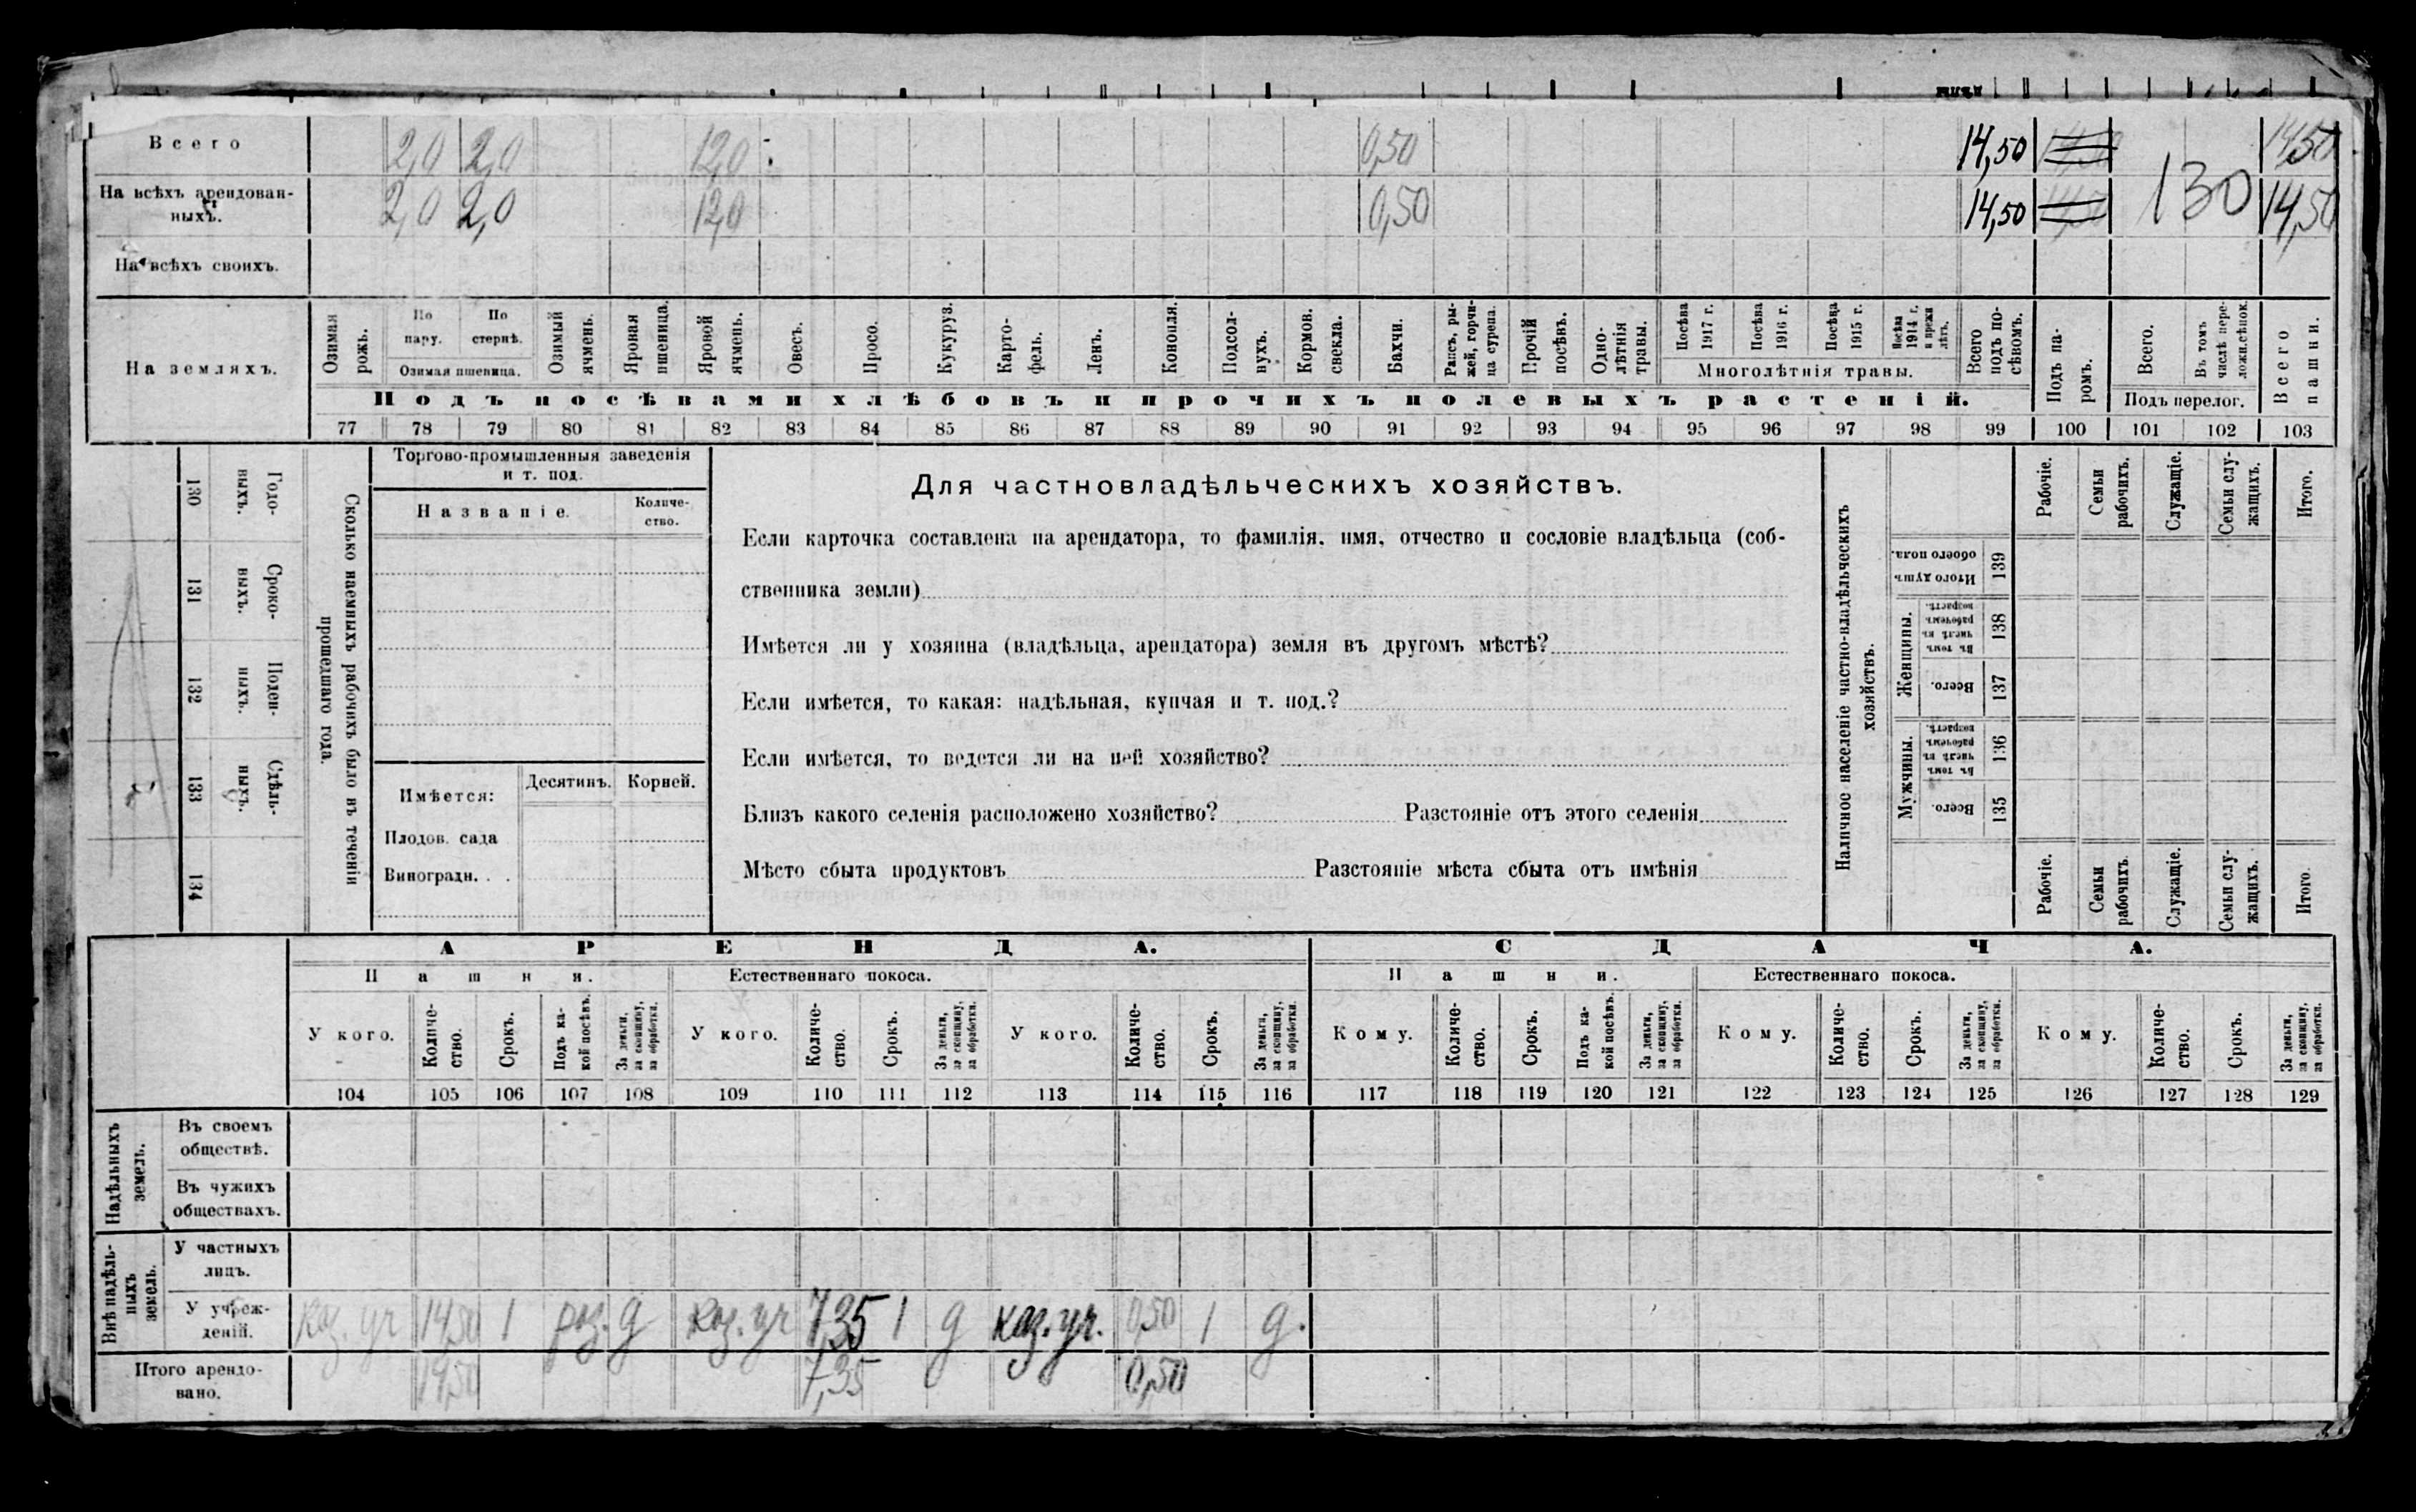 Всего 2,0 2,0 12,0 0,50 14,50 14,50
На всѣхъ арендован-
ныхъ. 2,0 2,0 12,0 0,50 14,50 130 14,50
На всѣхъ своихъ.
На земляхъ.
Озимая рожь.
По пару.
По стернѣ.
Озимая пшеница.
Озимый ячмень.
Яровая пшеница.
Яровой ячмень.
Овесъ.
Просо.
Кукуруз.
Карто-
фель.
Ленъ.
Конопля.
Подсол-
нухъ.
Кормов.
свекла.
Бахчи.
Рапсъ, ры-
жей, горчи-
ца сурепа.
Прочій
посѣвъ.
Одно-
лѣтнія
травы.
Посѣва
1917 г.
Посѣва
1916 г.
Посѣва
1915 г.
Посѣва
1914 г.
и прежн
лѣтъ.
Многолѣтнія травы.
Всего
подъ по-
сѣвомъ.
Подъ па-
ромъ.
Всего.
Въ томъ
числѣ пере-
ложн.сѣнок.
Подъ перелог.
Всего
пашни.
Подъ посѣвами хлѣбовъ и прочихъ полевыхъ растеній.
77 78 79 80 81 82 83 84 85 86 87 88 89 90 91 92 93 94 95 96 97 98 99 100 101 102 103
Годо-
выхъ.
130
Сроко-
выхъ.
131
Поден-
ныхъ.
132
Сдѣль-
ныхъ.
133
134
Сколько наемныхъ рабочихъ было въ теченіи
прошедшаго года.
Торгово-промышленныя заведенія
и т. под.
Названіе.
Количе-
ство.
Имѣется:
Десятинъ.
Корней.
Плодов. сада
Виноградн. . .
Для частновладѣльческихъ хозяйствъ.
Если карточка составлена на арендатора, то фамилія, имя, отчество и сословіе владѣльца (соб-
ственника земли)
Имѣется ли у хозяина (владѣльца, арендатора) земля въ другомъ мѣстѣ?
Если имѣется, то какая: надѣльная, купчая и т. под.?
Если имѣется, то ведется ли на ней хозяйство?
Близъ какого селенія расположено хозяйство? Разстояніе отъ этого селенія
Мѣсто сбыта продуктовъ Разстояніе мѣста сбыта отъ имѣнія
Наличное населеніе частно-владѣльческихъ
хозяйствъ.
Итого душъ
обоего пола.
139
Женщины.
Въ томъ
числѣ въ
рабочемъ
возрастѣ.
138
Всего.
137
Мужчины.
Въ томъ
числѣ въ
рабочемъ
возрастѣ.
136
Всего.
135
Рабочіе.
Семьи
рабочихъ.
Служащіе.
Семьи слу-
жащихъ.
Итого.
Рабочіе.
Семьи
рабочихъ.
Служащіе.
Семьи слу-
жащихъ.
Итого.
АРЕНДА. СДАЧА.
Пашни. Естественнаго покоса. Пашни. Естественнаго покоса.
У кого.
Количе-
ство.
Срокъ.
Подъ ка-
кой посѣвъ.
За деньги,
за скопщину,
за обработки.
У кого.
Количе-
ство.
Срокъ.
За деньги,
за скопщину,
за обработки.
У кого.
Количе-
ство.
Срокъ.
За деньги,
за скопщину,
за обработки.
Кому.
Количе-
ство.
Срокъ.
Подъ ка-
кой посѣвъ.
За деньги,
за скопщину,
за обработки.
Кому.
Количе-
ство.
Срокъ.
За деньги,
за скопщину,
за обработки.
Кому.
Количе-
ство.
Срокъ.
За деньги,
за скопщину,
за обработки.
104 105 106 107 108 109 110 111 112 113 114 115 116 117 118 119 120 121 122 123 124 125 126 127 128 129
Надѣльныхъ
земель.
Въ своемъ
обществѣ.
Въ чужихъ
обществахъ.
Внѣ надѣль-
ныхъ
земель.
У частныхъ
лицъ.
У учреж-
деній.
каз. уч 14,50 1 роз. д каз. уч 7,35 1 д каз. уч. 0,50 1 д.
Итого арендо-
вано. 14,50 7,35 0,50